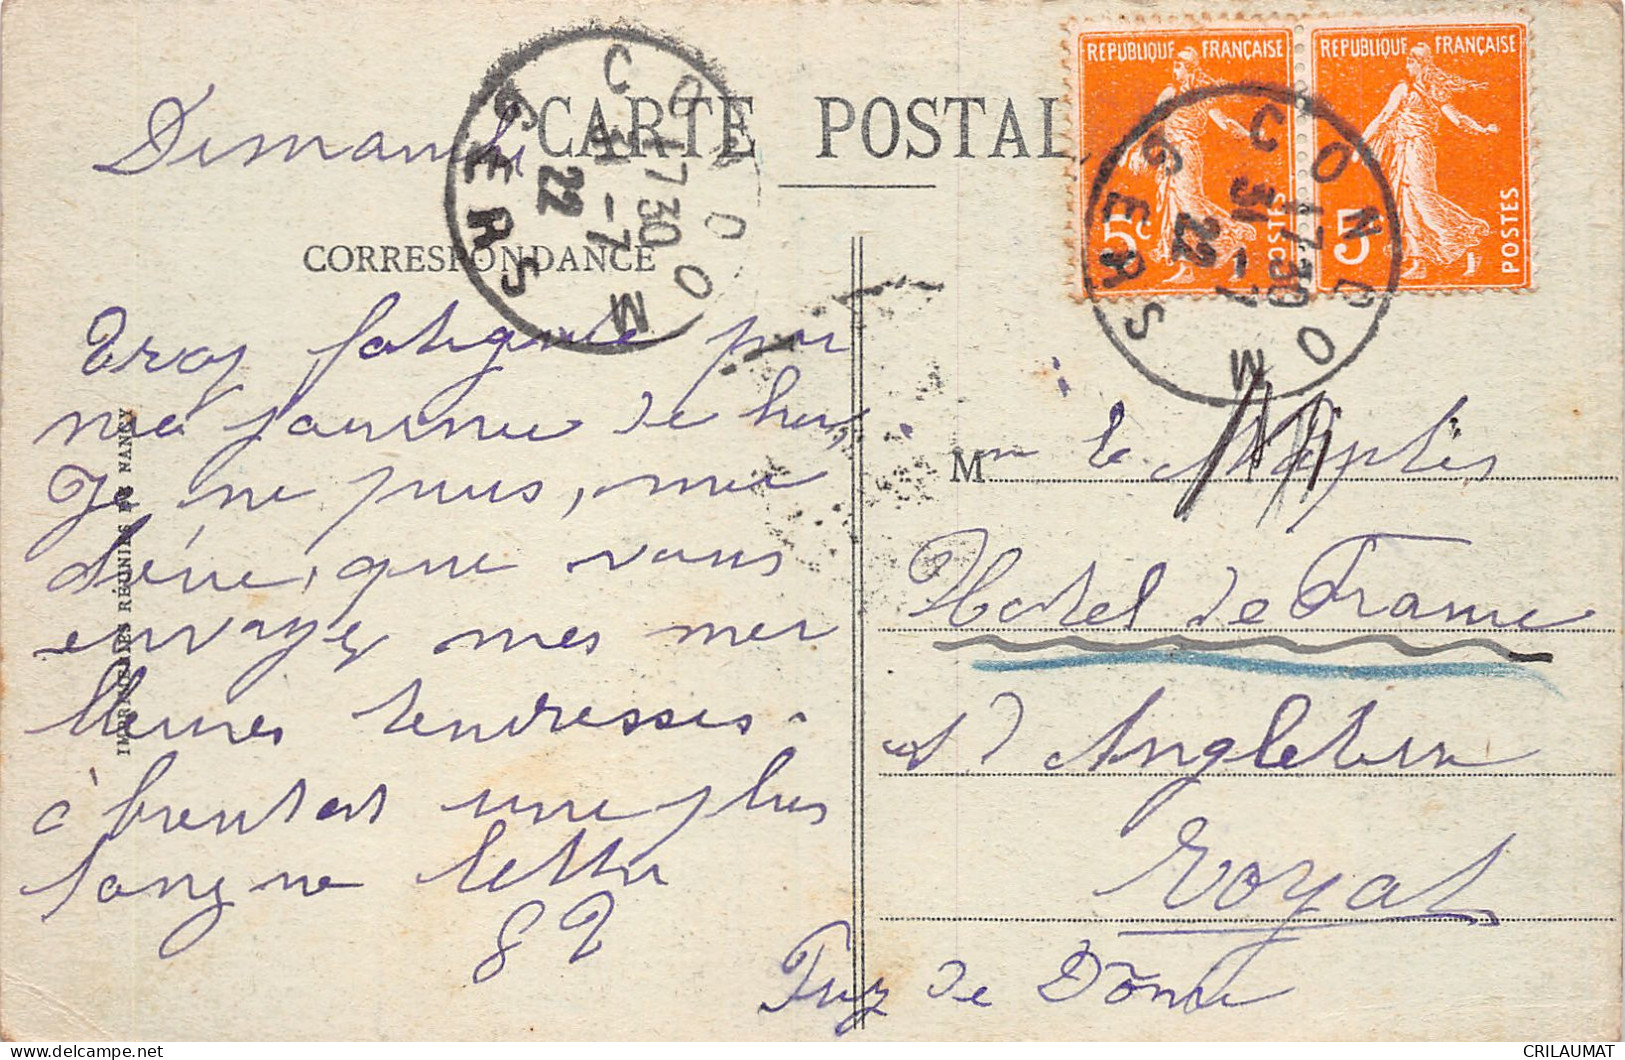 CARTE POSTALE
Dimanche
CORRESPONDANCE
CONDOM
17 30
31 -7
22
GERS
REPUBLIQUE FRANÇAISE
5c
POSTES
REPUBLIQUE FRANÇAISE
5
POSTES
CONDOM
17 30
31 -7
22
GERS
Trop fatiguée par
ma journée de hier,
Je ne puis, ma
chérie, que vous
envoyez mes meil
lleures tendresses.
à bientôt une plus
longue lettre
Mme
Hotel de France
et d'Angleterre
Royat
Puy de Dôme
IMPRIMERIES RÉUNIES DE NANCY
CRILAUMAT